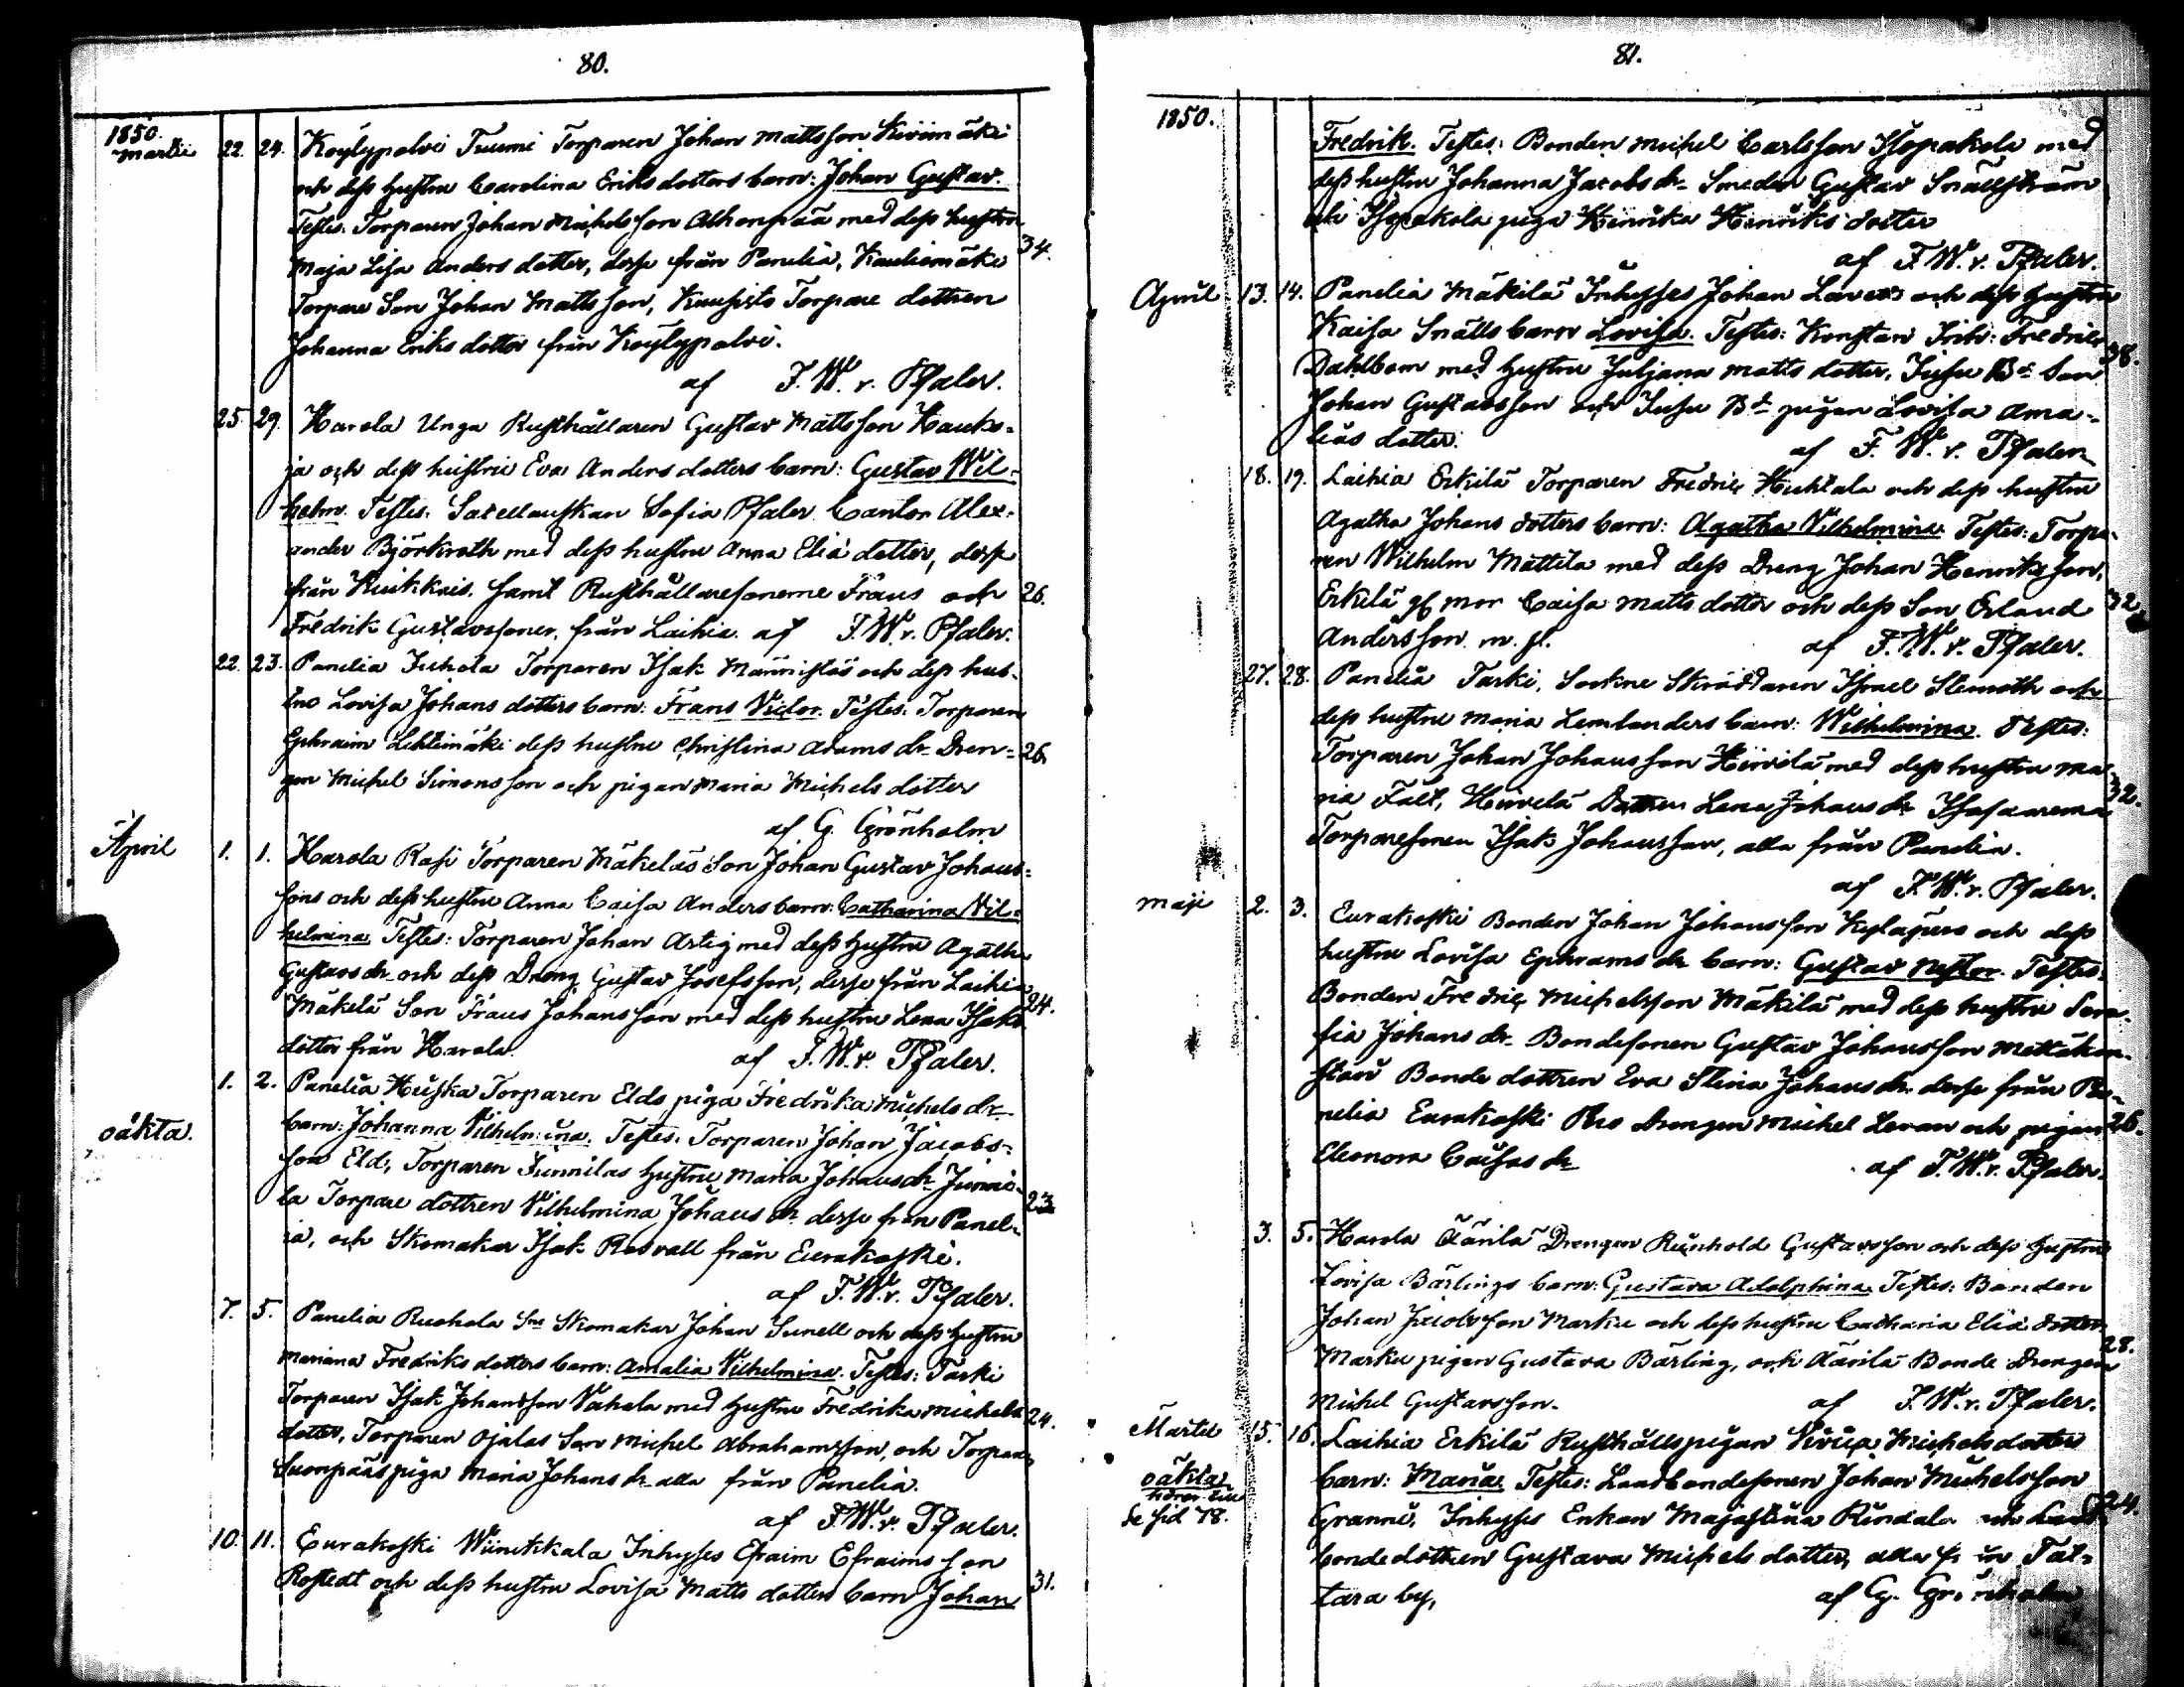 80.
1850.
Martii 22. 24. Köylypolvi Tuumi Torparen Johan Mattsson Kivimäki
och dess hustru Carolina Eriks dotters barn: Johan Gustav.
Testes. Torparen Johan Michelsson Alhonpää med dess hustru
Maja Lisa Anders dotter, desse från Panelia, Kauliomäki 34.
Torpare Son Johan Mattsson, Torpare dottren
Johanna Eriks dotter från Köylypolvi.
af F. W. v. Pfaler.
25 29. Harola Unga Rusthållaren Gustav Mattsson Hauko-
ja och dess hustru Eva Anders dotters barn: Gustav Wil-
helm. Testes. Sacellanskan Sofia Pfaler Cantor Alex-
ander Björkroth med dess hustru Anna Eliä dotter, desse
från samt Rusthållaresonerne Frans och 26.
Fredrik Gustavssoner, från Laihia. af F. W. v. Pfaler.
22. 23. Panelia Juhola Torparen Isak Männistös och dess hus-
tru Lovisa Johans dotters barn: Frans Victor. Testes. Torparen
Ephraim Lehtimäki dess hustru Christina Adams dr Dren- 26.
gen Michel Simonsson och pigan Maria Michels dotter
af G. Grönholm
April 1. 1. Harola Rasi Torparen Mäkeläs Son Johan Gustav Johans-
sons och dess hustru Anna Caisa Anders barn: Catharina Vil-
helmina Testes: Torparen Johan Artig med dess hustru Agatha
Gustavs dr och dess Dreng Gustav Josefsson, desse från Laihia
Mäkelä Son Frans Johansson med dess hustru Lena Isaks 24.
dotter från Harola. af F. W. v. Pfaler.
1. 2. Panelia Huska Torparen Elds piga Fredrika Michels dr
oäkta. barn: Johanna Vilhelmina. Testes. Torparen Johan Jacobs-
son Eld, Torparen Junnilas hustru Maria Johans dr Junni-
la Torpare dottren Vilhelmina Johans dr desse från Panel- 23
ia, och Skomakar Isak Rosvall från Eurakoski.
af F. W. v. Pfaler.
7. 5. Panelia Ruohola Sne Skomakar Johan Sunell och dess hustru
Mariana Fredriks dotters barn: Amalia Vilhelmina. Testes: Tarki
Torparen Isak Johansson Vahala med hustru Fredrika Michels 24.
dotter, Torparen Ojalas Son Michel Abrahamsson, och Torparen
Suonpääs piga Maria Johans dr alla från Panelia.
af F. W. v. Pfaler.
10. 11. Eurakoski Wiinikkala Inhyses Efraim Efraimsson
Rostedt och dess hustru Lovisa Matts dotters barn Johan 31.
81.
1850.
Fredrik. Testes: Bonden Michel Carlsson Isopakola med
dess hustru Johanna Jacobs dr Smeden Gustav Snällström
och Isopakola piga Henrika Henriks dotter
af F. W. v. Pfaler.
April 13. 14. Panelia Mäkilä Inhyses Johan Laveus och dess hustru
Kaisa Snälls barn Lovisa. Testes: Konstan Inh: Fredric 38.
Dahlbom med hustru Juljana Matts dotter, Bd Son
Johan Gustavsson och Bd pigan Lovisa Ama-
lias dotter. af F. W. v. Pfaler
18. 19. Laihia Erkilä Torparen Fredric Huhtala och dess hustru
Agatha Johans dotters barn: Agatha Vilhelmina Testes: Torpa-
ren Wilhelm Mattila med dess Dreng Johan Henriksson,
Erkilä gf mor Caisa Matts dotter och dess Son Erland 32.
Andersson m. fl. af F. W. v. Pfaler.
27. 28. Panelia Tarki, Sockne Skräddaren Israel Stenroth och
dess hustru Maria Lemlanders barn: Wilhelmina. Testes:
Torparen Johan Johansson Heivilä med dess hustru Ma-
ria Fält, Heivelä Dottren Lena Johans dr Isosaarema 32.
Torparesonen Isak Johansson, alla från Panelia.
af F. W. v. Pfaler.
Maji 2. 3. Eurakoski Bonden Johan Johansson Kyläpuro och dess
hustru Lovisa Ephraims dr barn: Gustav Nestor. Testes.
Bonden Fredric Michelsson Mäkilä med dess hustru Sera-
fia Johans dr Bondesonen Gustav Johansson
Bonde dottren Eva Stina Johans dr desse från Pa-
nelia Eurakoski Drengen Michel Levan och pigan 26.
Eleonora Caisas dr af F. W. v. Pfaler.
3. 5. Harola Äärilä Drengen Reinhold Gustavsson och dess hustru
Lovisa Bärlings barn: Gustava Adolphina. Testes: Bonden
Johan Jacobsson Marku och dess hustru Catharia Eliä dotter 28.
Marku pigan Gustava Bärling, och Äärilä Bonde Drengen
Michel Gustavsson. af F. W. v. Pfaler.
Martii 15. 16. Laihia Erkilä Rusthålls pigan Michels dotter
oäkta barn: Maria. Testes: Landbondesonen Johan Michelsson
hörer till
se sid 78. Granni, Inhyses Enkan Majastina Rindala och Land- 24.
bondedottren Gustava Michels dotter, alla från Tat-
tara by, af G. Grönholm